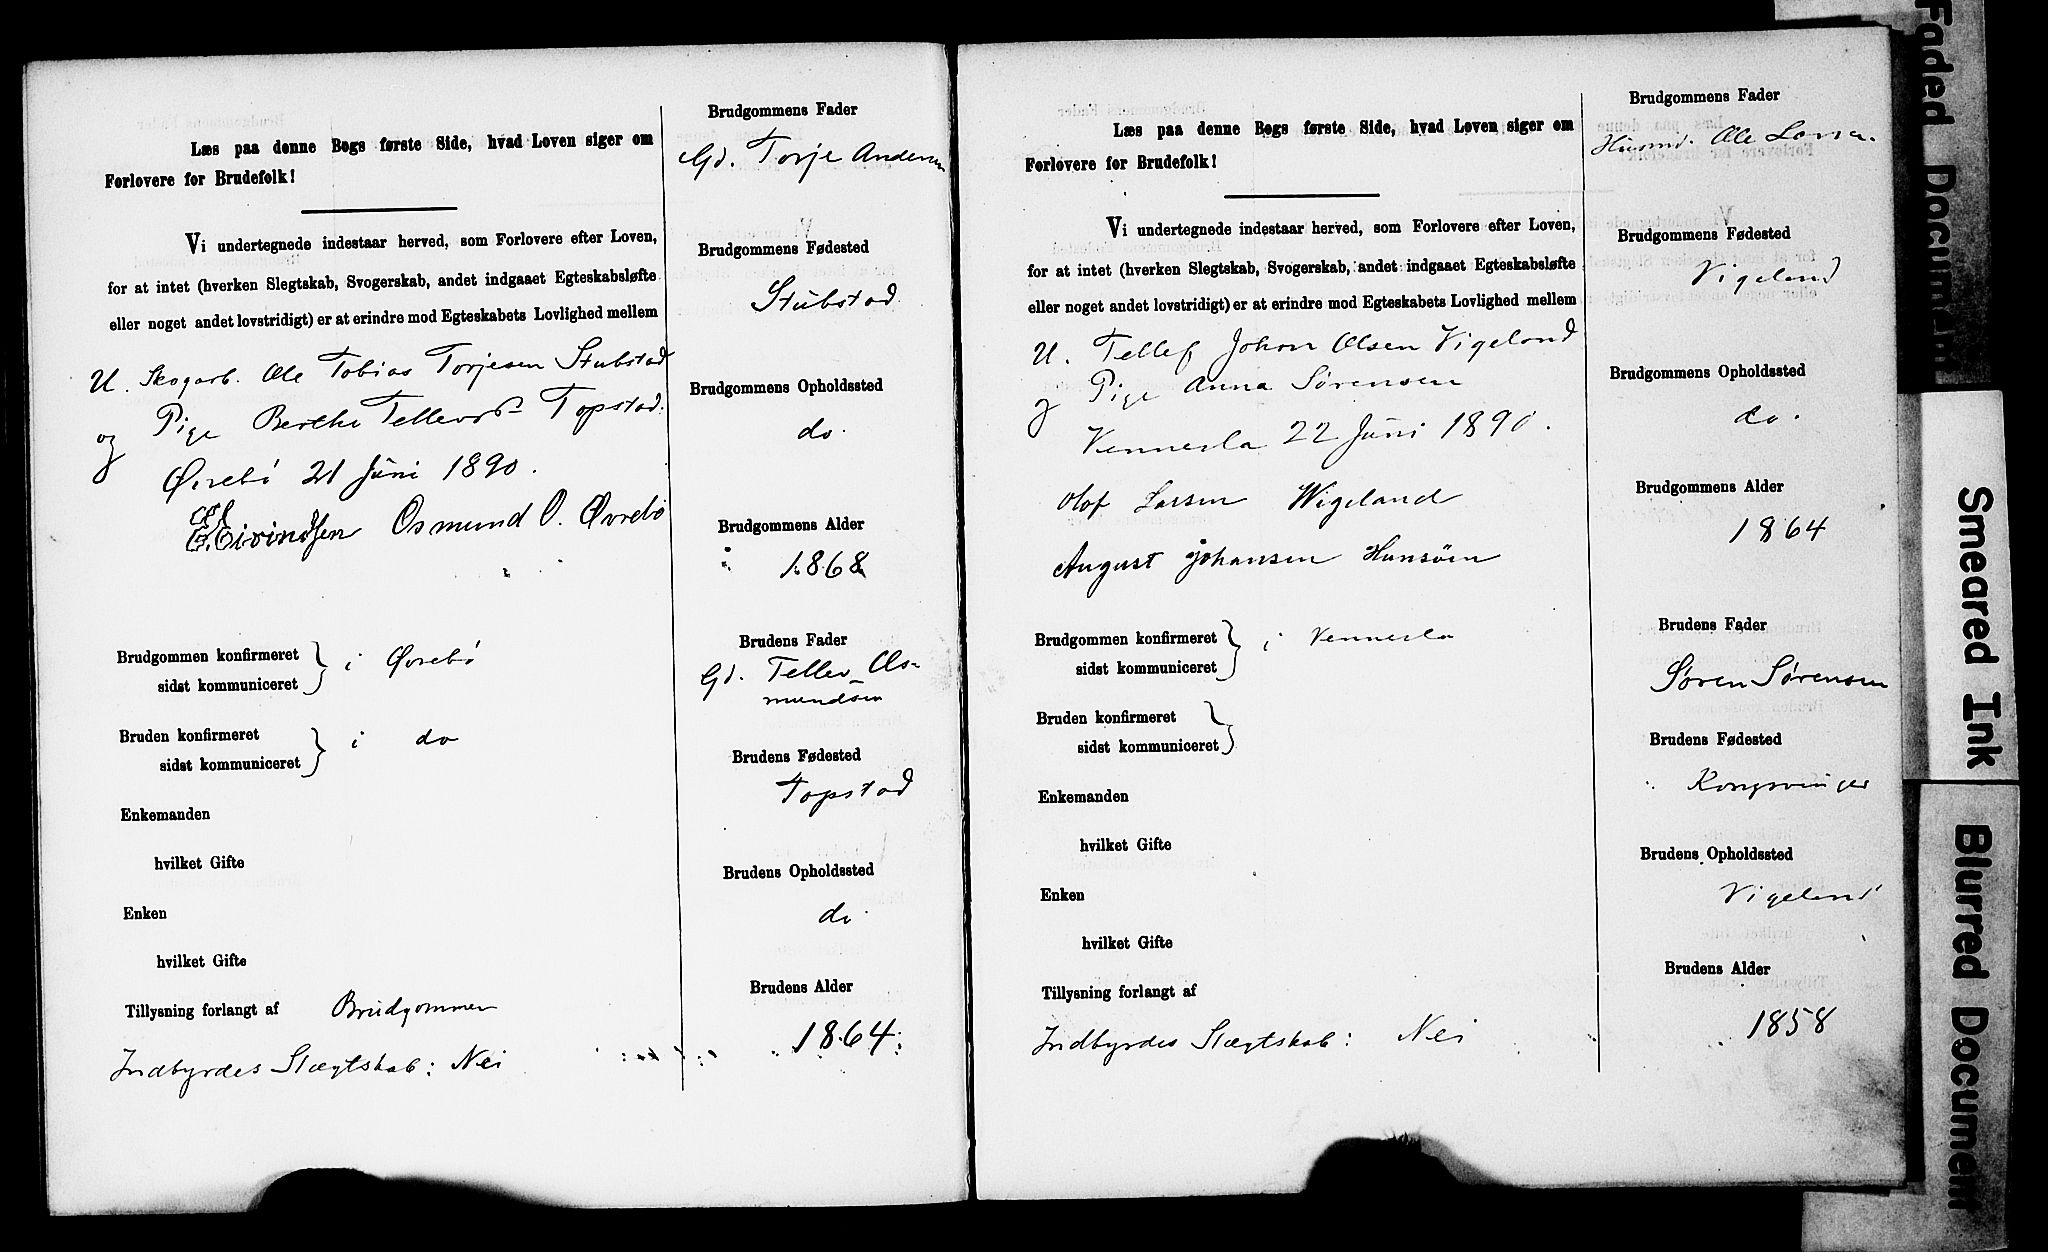 Læs paa denne Bogs første Side, hvad Loven siger om
Forlovere for Brudefolk!
Vi undertegnede indestaar herved, som Forlovere efter Loven,
for at intet (hverken Slegtskab, Svogerskab, andet indgaaet Egteskabsløfte
eller noget andet lovstridigt) er at erindre mod Egteskabets Lovlighed mellem
U. Skogarb. Ole Tobias Torjesen Stubstad
og Pige Berthe Tellevsd Topstad.
Øvrebö 21 Juni 1890.
E. Eivindsen Osmund O. Øvrebö
Brudgommen konfirmeret
sidst kommuniceret } i Øvrebö
Bruden konfirmeret
sidst kommuniceret } i do
Enkemanden
hvilket Gifte
Enken
hvilket Gifte
Tillysning forlangt af Brudgommen
Indbyrdes Slægtskab: Nei
Brudgommens Fader
Gd. Torje Andersen
Brudgommens Fødested
Stubstad
Brudgommens Opholdssted
do.
Brudgommens Alder
1868
Brudens Fader
Gd. Tellev Os-
mundsen
Brudens Fødested
Topstad
Brudens Opholdssted
do.
Brudens Alder
1864
Læs paa denne Bogs første Side, hvad Loven siger om
Forlovere for Brudefolk!
Vi undertegnede indestaar herved, som Forlovere efter Loven,
for at intet (hverken Slegtskab, Svogerskab, andet indgaaet Egteskabsløfte
eller noget andet lovstridigt) er at erindre mod Egteskabets Lovlighed mellem
U. Tellef Johan Olsen Vigeland
og Pige Anna Sørensen
Vennesla 22 Juni 1890.
Olof Larsen Wigeland
August Johansen Hunsöen
Brudgommen konfirmeret
sidst kommuniceret } i Vennesla
Bruden konfirmeret
sidst kommuniceret }
Enkemanden
hvilket Gifte
Enken
hvilket Gifte
Tillysning forlangt af
Indbyrdes Slægtskab: Nei
Brudgommens Fader
Husmd. Ole Larsen
Brudgommens Fødested
Vigeland
Brudgommens Opholdssted
do.
Brudgommens Alder
1864
Brudens Fader
Søren Sørensen
Brudens Fødested
Kongsvinger
Brudens Opholdssted
Vigeland
Brudens Alder
1858
Faded Document
Smeared Ink
Blurred Document